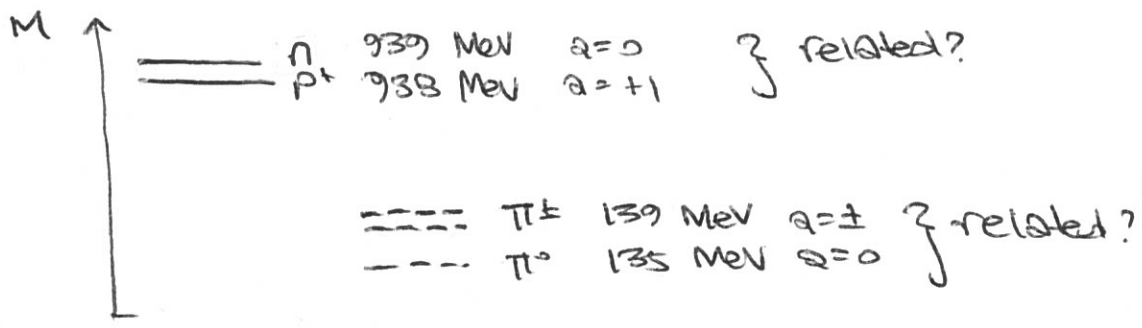 M
n 939 MeV Q=0 } related?
p+ 938 MeV Q=+1
π± 139 MeV Q=± } related?
π° 135 MeV Q=0